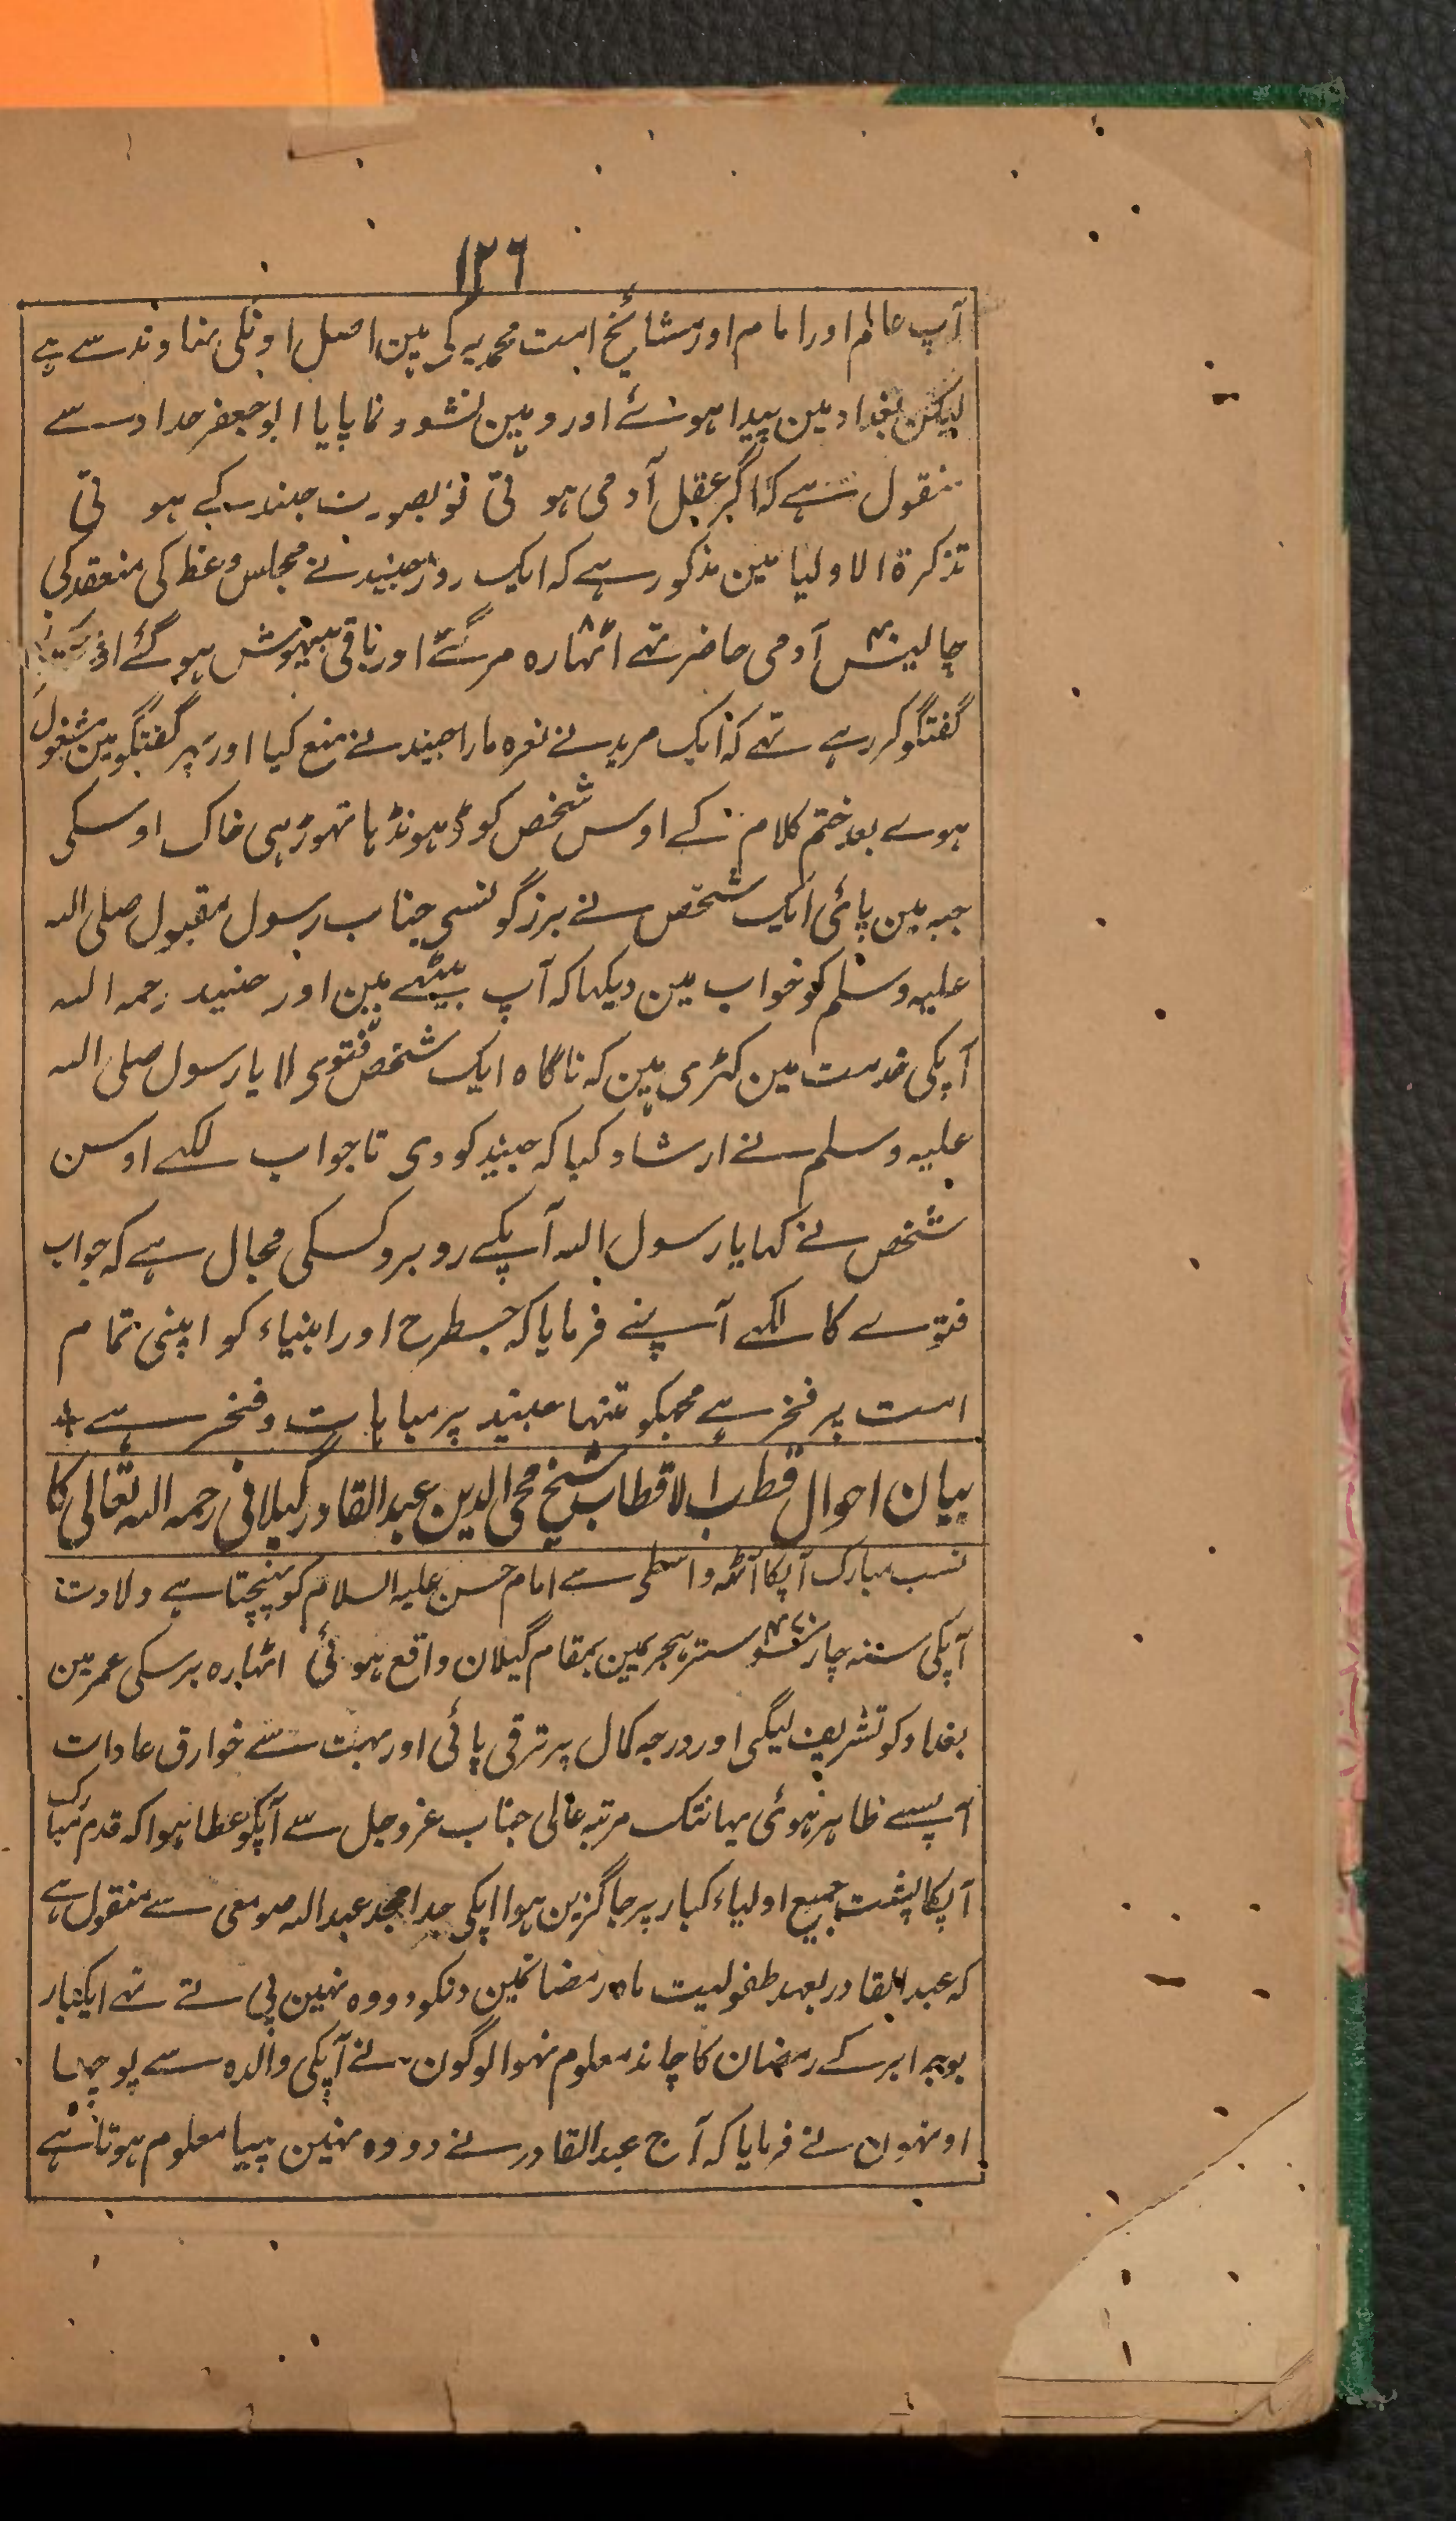 ١٢٦
آپ عالم اور امام اور مشایخ امت محمدیہ کی ہین اصل اونکی نہاوند سے ہے
لیکن بغداد مین پیدا ہوئے اور وہین نشو و نما پایا ابو جعفر حداد سے
منقول ہے کہ اگر عقل آدمی ہوتی تو بصورت جنید کے ہوتی
تذکرۃ الاولیا مین مذکور ہے کہ ایک روز جنید نے مجلس وعظ کی منعقد کی
چالیس آدمی حاضر تہے اٹہارہ مر گئے اور باقی بیہوش ہو گئے
گفتگو کر رہے تہے کہ ایک مرید نے نعرہ مارا جنید نے منع کیا اور پہر گفتگو مین مشغول
ہوے بعد ختم کلام کے اوس شخص کو ڈہونڈہا تہوڑہی خاک اوسکی
جبہ مین پائی ایک شخص نے بزرگونسی جناب رسول مقبول صلی اللہ
علیہ وسلم کو خواب مین دیکہا کہ آپ بیٹہے ہین اور جنید رحمہ اللہ
آپکی خدمت مین کہڑی ہین کہ ناگاہ ایک شخص فتوی لایا رسول صلی اللہ
علیہ وسلم نے ارشاد کیا کہ جنید کو دی تا جواب لکہے اوسن
شخص نے کہا یا رسول اللہ آپکے روبرو کسکی مجال ہے کہ جواب
فتوے کا لکہے آپنے فرمایا کہ جسطرح اور انبیاء کو اپنی تمام
امت پر فخر ہے مجہکو تنہا جنید پر مباہات و فخر ہے
بیان احوال قطب الاقطاب شیخ محی الدین عبد القادر گیلانی رحمہ اللہ تعالی کا
نسب مبارک آپکا آٹہہ واسطی سے امام حسن علیہ السلام کو پہنچتا ہے ولادت
آپکی سنہ چار سو ستر ہجریمین بمقام گیلان واقع ہوئی اٹہارہ برسکی عمر مین
بغداد کو تشریف لیگی اور درجہ کمال پر ترقی پائی اور بہت سے خوارق عادات
آپسے ظاہر ہوئی یہانتک مرتبہ عالی جناب عز و جل سے آپکو عطا ہوا کہ قدم مبارک
آپکا پشت جمیع اولیاء کبار پر جاگزین ہوا اپکی جد امجد عبد اللہ صومعی سے منقول ہے
کہ عبد القادر بعہد طفولیت ماہ رمضانمین دنکو دودہ نہین پی تے تہے ایکبار
بوجہ ابر کے رمضان کا چاند معلوم نہوا لوگون نے آپکی والدہ سے پوچہا
اونہون نے فرمایا کہ آج عبد القادر نے دودہ نہین پیا معلوم ہوتا ہے